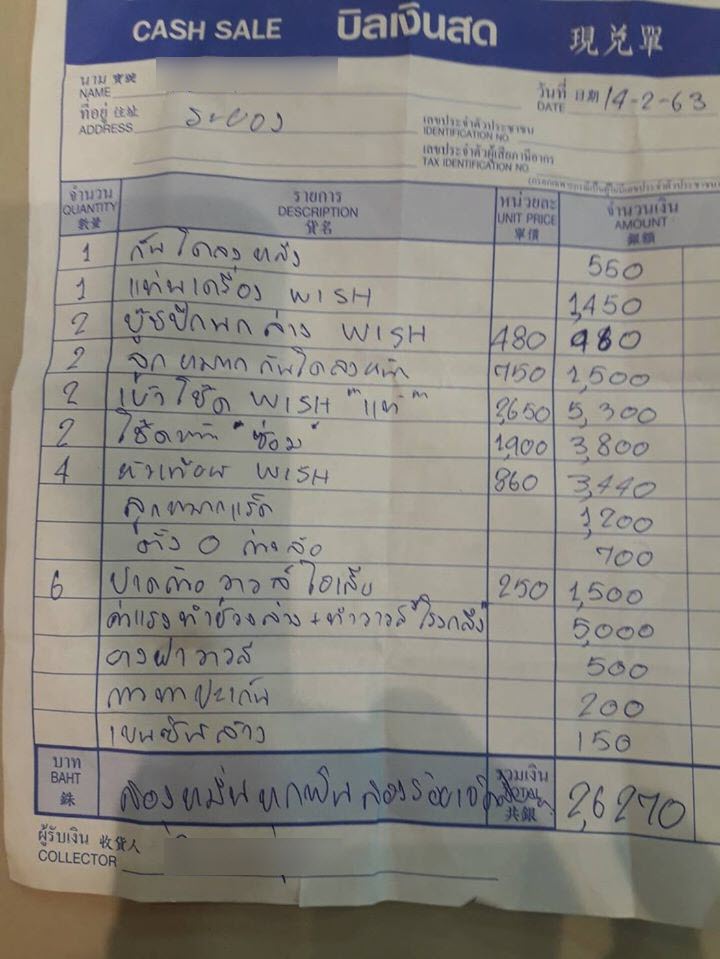 CASH SALE บิลเงินสด 現兌單
นาม 寶號
NAME
วันที่ 日期
DATE 14-2-63
ที่อยู่ 住址
ADDRESS ระยอง
เลขประจำตัวประชาชน
IDENTIFICATION NO.
เลขประจำตัวผู้เสียภาษีอากร
TAX IDENTIFICATION NO.
จำนวน รายการ หน่วยละ จำนวนเงิน
QUANTITY DESCRIPTION UNIT PRICE AMOUNT
數量 貨名 單價 銀額
1 กันโคลงหลัง 550
1 แท่นเครื่อง WISH 1,450
2 บู๊ชปีกนกล่าง WISH 480 980
2 ลูกหมากกันโคลงหน้า 750 1,500
2 เบ้าโช๊ค WISH "แท้" 2,650 5,300
2 โช๊คหน้า "ซ่อม" 1,900 3,800
4 หัวเทียน WISH 860 3,440
ลูกหมากแร็ค 1,200
ตั้ง 0 ถ่วงล้อ 700
6 ปาดหน้าวาวส์ไอเสีย 250 1,500
ค่าแรงทำช่วงล่าง + ทำวาวส์ "โรงกลึง" 5,000
ยางฝาวาวส์ 500
กาวทาปะเก็น 200
เบนซินล้าง 150
บาท
BAHT
銖
สองหมื่นหกพันสองร้อยเจ็ดสิบ
รวมเงิน
TOTAL
共銀
26270
ผู้รับเงิน 收貨人
COLLECTOR